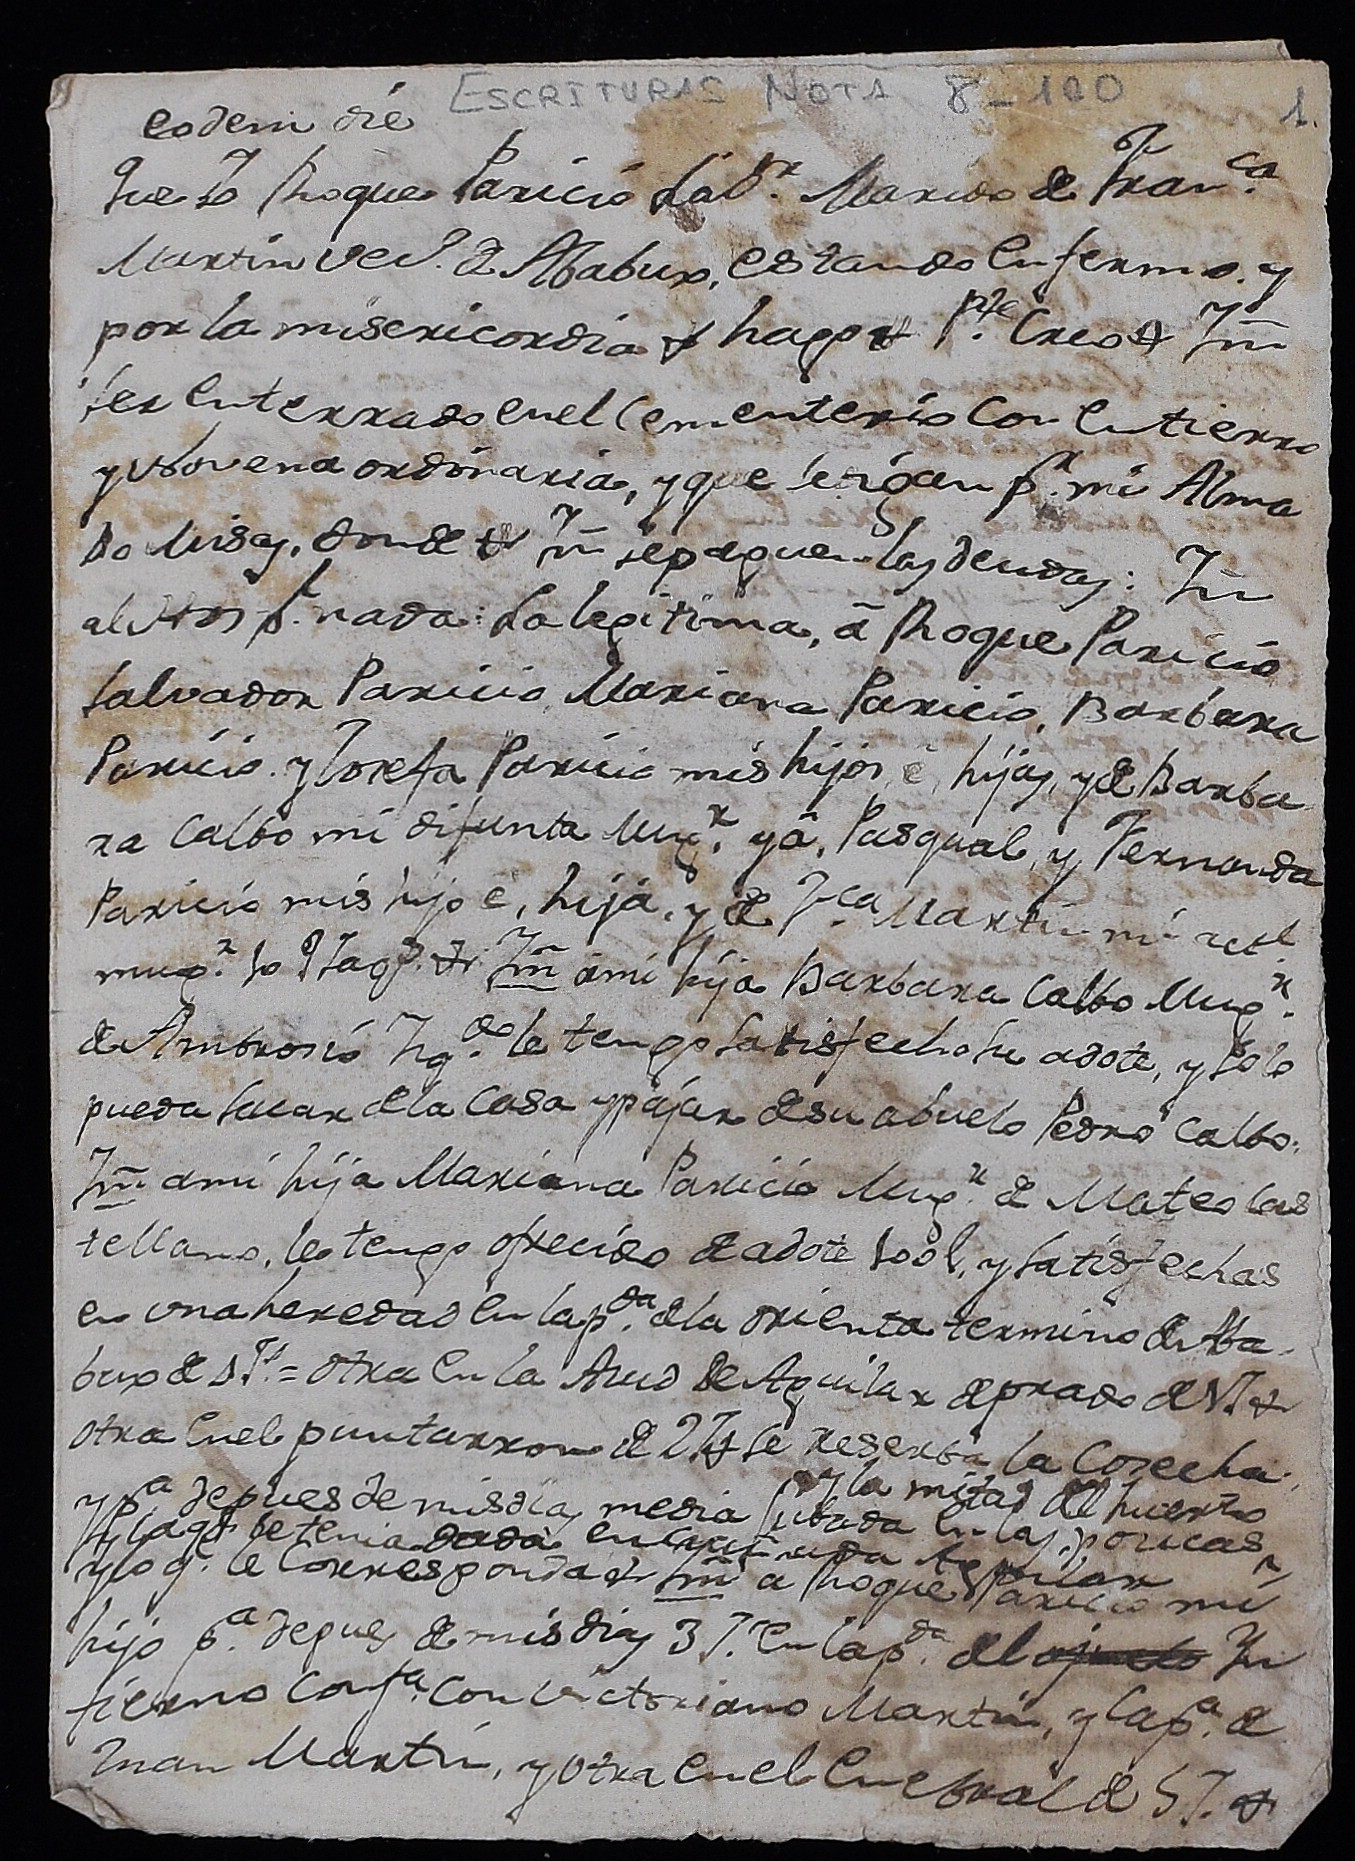 ESCRITURAS NOTA 8-100
1.
eodem die
Que Yo Roque Paricio Labr. Marido de Franca.
Martin vecº. de Ababux, estando enfermo. y
por la misericordia & hago & pte. Creo & Itm
ser enterrado en el Cementerio con entierro
y Novena ordinaria, y que se digan pr. mi Alma
50 Misas, donde & Itm se paguen las deudas: Itm
al Hospl. nada: La legitima, â Roque Paricio
Salvador Paricio, Mariana Paricio, Barbara
Paricio. y Josefa Paricio mis hijos, é, hijas, y de Barba
ra Calbo mi difunta Mugr. y â, Pasqual, y Fernanda
Paricio mis hijo é, hija, y de Fca. Martin mi actl.
mugr. & Itm a mi hija Barbara Calbo Mugr.
de Ambrosio Ygdo. le tengo satisfecho su adote, y solo
pueda sacar de la Casa y pajar de su abuelo Pedro Calbo.
Itm a mi hija Mariana Paricio Mugr. de Mateo Cas
tellano, le tengo ofrecido de adote 100 l, y satisfechas
en una heredad en la pda. de la orienta termino de Aba
bux de = otra en la de Aguilar de prado de &
otra en el puntarron de 2 J. & se reserba la Cosecha.
y pa. depues de mis dias media y la mitad del huerto
qe. le tenia dada en las poricas
y lo q. le Corresponda & Itm a Roque Paricio mi
hijo pa. depues de mis dias 3 J. en la pda. del Yn
fierno confta. con Victoriano Martin, y la pa. de
Juan Martin, y otra en el Enebral de 5 J. &